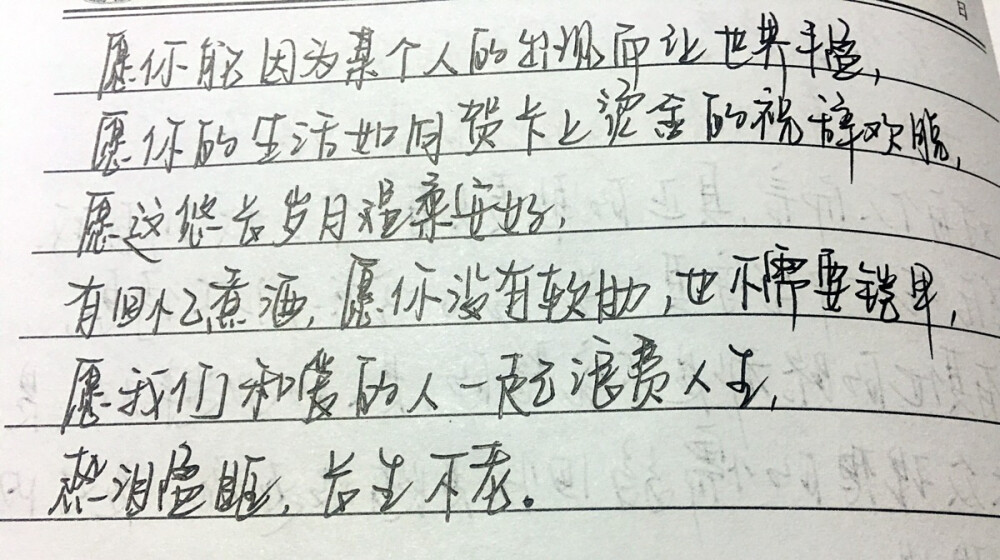 日
愿你能因为某个人的出现而让世界丰盈,
愿你的生活如同贺卡上烫金的祝辞欢脱,
愿这悠长岁月温柔安好,
有回忆煮酒,愿你没有软肋,也不需要铠甲,
愿我们和爱的人一起浪费人生,
热泪盈眶,长生不老。